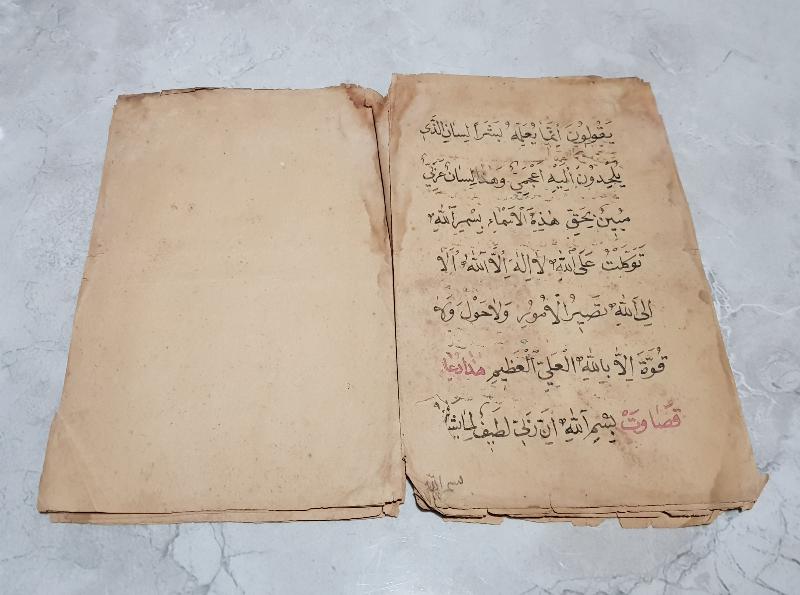 يَقُولُونَ اِنَّمَا يُعَلِّمُهُ بَشَرًا لِسَانُ الَّذِي
يُلْحِدُونَ اِلَيْهِ اَعْجَمِيٌّ وَهٰذَا لِسَانٌ عَرَبِيٌّ
مُبِينٌ بِحَقِّ هٰذِهِ الْاَسْمَاءِ بِسْمِ اللّٰهِ
تَوَكَّلْتُ عَلَى اللّٰهِ لَا اِلٰهَ اِلَّا اللّٰهُ اَلَا
اِلَى اللّٰهِ تَصِيرُ الْاُمُورُ وَلَا حَوْلَ وَلَا
قُوَّةَ اِلَّا بِاللّٰهِ الْعَلِيِّ الْعَظِيمِ هذا دعا
قَضَاوَتْ بِسْمِ اللّٰهِ اِنَّ رَبِّي لَطِيفٌ لِمَا يَشَاءُ
بسم الله